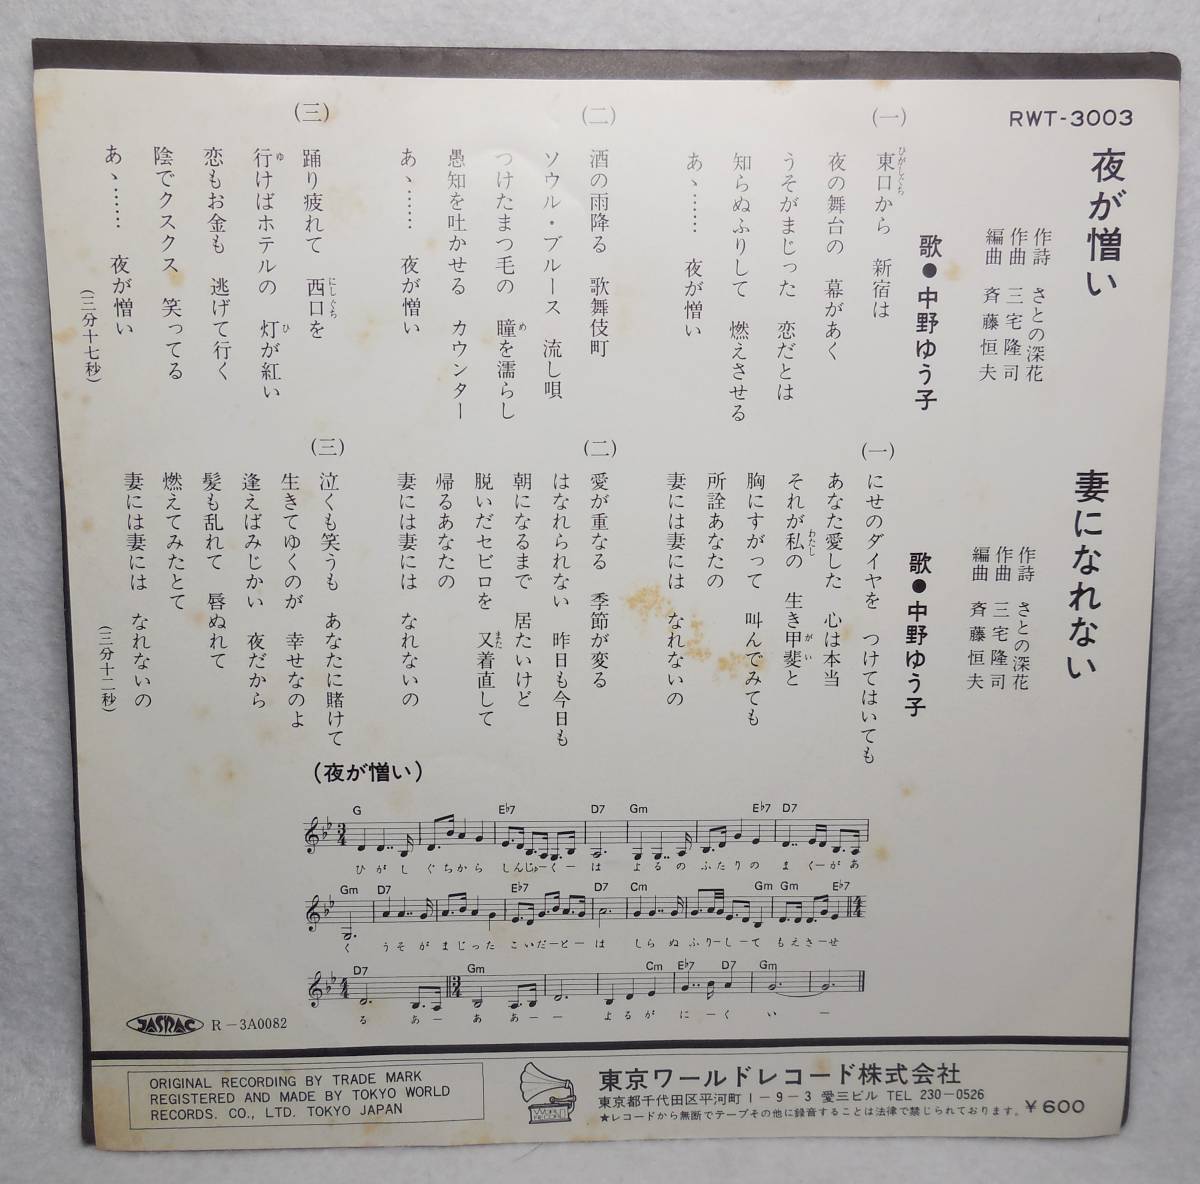 RWT-3003
夜が憎い
作詩 さとの深花
作曲 三宅隆司
編曲 斉藤恒夫
歌●中野ゆう子
(一)
東口から 新宿は
ひがしぐち
夜の舞台の 幕があく
うそがまじった 恋だとは
知らぬふりして 燃えさせる
あゝ…… 夜が憎い
(二)
酒の雨降る 歌舞伎町
ソウル・ブルース 流し唄
つけたまつ毛の 瞳を濡らし
め
愚知を吐かせる カウンター
あゝ…… 夜が憎い
(三)
踊り疲れて 西口を
にしぐち
行けばホテルの 灯が紅い
ゆ ひ
恋もお金も 逃げて行く
陰でクスクス 笑ってる
あゝ…… 夜が憎い
(三分十七秒)
妻になれない
作詩 さとの深花
作曲 三宅隆司
編曲 斉藤恒夫
歌●中野ゆう子
(一)
にせのダイヤを つけてはいても
あなた愛した 心は本当
それが私の 生き甲斐と
わたし がい
胸にすがって 叫んでみても
所詮あなたの
妻には妻には なれないの
(二)
愛が重なる 季節が変る
はなれられない 昨日も今日も
朝になるまで 居たいけど
脱いだセビロを 又着直して
また
帰るあなたの
妻には妻には なれないの
(三)
泣くも笑うも あなたに賭けて
生きてゆくのが 幸せなのよ
逢えばみじかい 夜だから
髪も乱れて 唇ぬれて
燃えてみたとて
妻には妻には なれないの
(三分十二秒)
(夜が憎い)
G E♭7 D7 Gm E♭7 D7
3/4
ひがし ぐちから しんじゅーくー は よるの ふたりの まくーがあ
Gm D7 E♭7 D7 Cm Gm Gm E♭7
4/4
く うそが まじった こいだーとー は しらぬ ふりーしーて もえさーせ
D7 Gm Cm E♭7 D7 Gm
4/4 3/4
る あー ああー ー よるが にーく い ー
JASRAC R-3A0082
ORIGINAL RECORDING BY TRADE MARK
REGISTERED AND MADE BY TOKYO WORLD
RECORDS. CO., LTD. TOKYO JAPAN
WORLD RECORD
東京ワールドレコード株式会社
東京都千代田区平河町1-9-3 愛三ビル TEL 230-0526
★レコードから無断でテープその他に録音することは法律で禁じられております。 ¥600